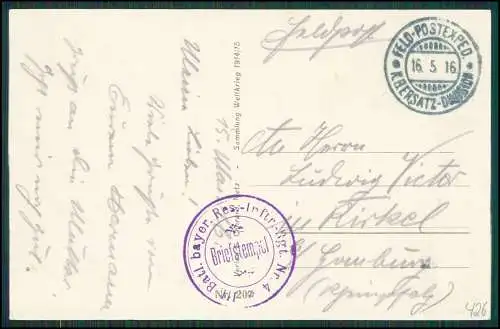 Feldpost
FELD-POSTEXPED.
16. 5. 16
K.B. ERSATZ-DIVISION
An Herrn
Ludwig Victor
in Kirkel
b/ Homburg
(Rheinpfalz)
Sammlung Weltkrieg 1914/15
Batl. bayer. Res.-Inftr.-Rgt. Nr. 4
Briefstempel
15. Mai
Meine Lieben!
Viele Grüße von
Eurem Hermann
Gruß an die Mutter.
mir noch gut.
426